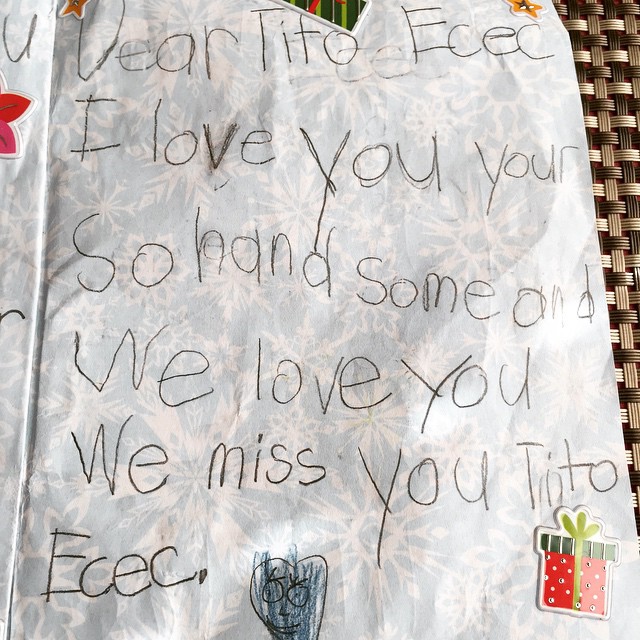 Dear Tito Ecec
I love you your
So hand some and
We love you
We miss you Tito
Ecec.